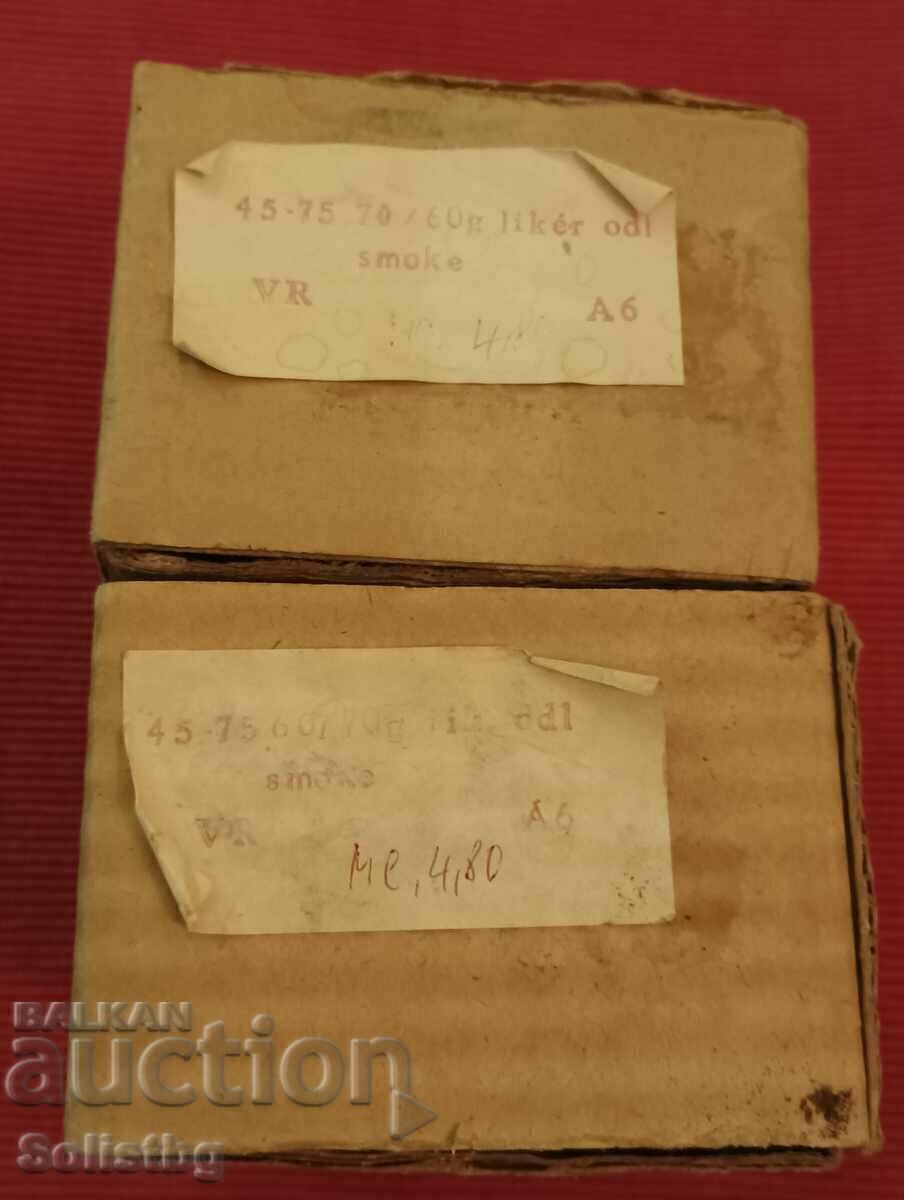 45-75 70/60g likér odl
smoke
VR A6
4,80
45-75 60/70g lik odl
smoke
VR A6
MC, 4,80
BALKAN
auction
Solistbg